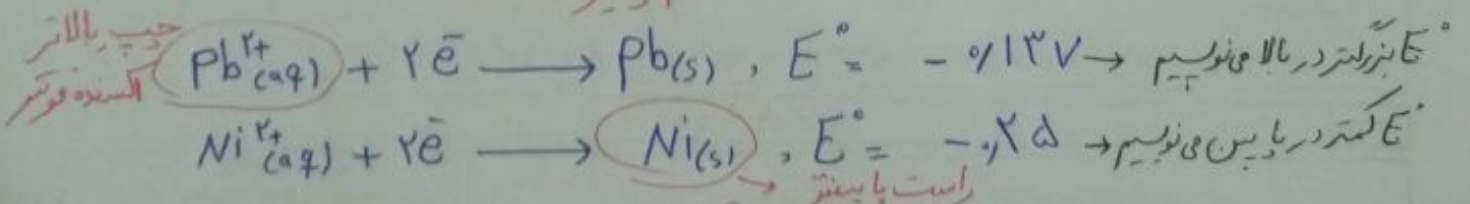 چپ بالاتر
اکسنده قویتر
Pb²⁺(aq) + ۲e⁻ → Pb(s) , E° = -۰/۱۳۷ → E° بزرگتر در بالا می‌نویسیم
Ni²⁺(aq) + ۲e⁻ → Ni(s) , E° = -۰,۲۵ → E° کمتر در پایین می‌نویسیم
راست پایینتر